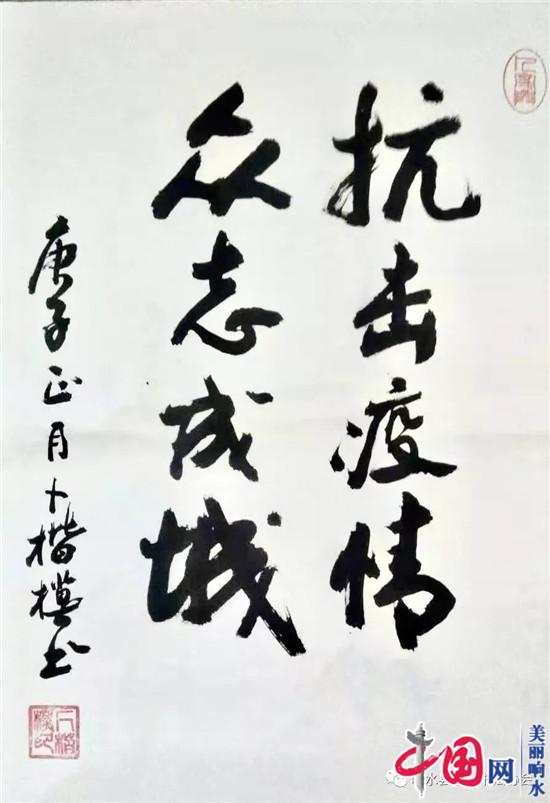 抗击疫情
众志成城
庚子正月卜楷模书
中国网
美丽响水